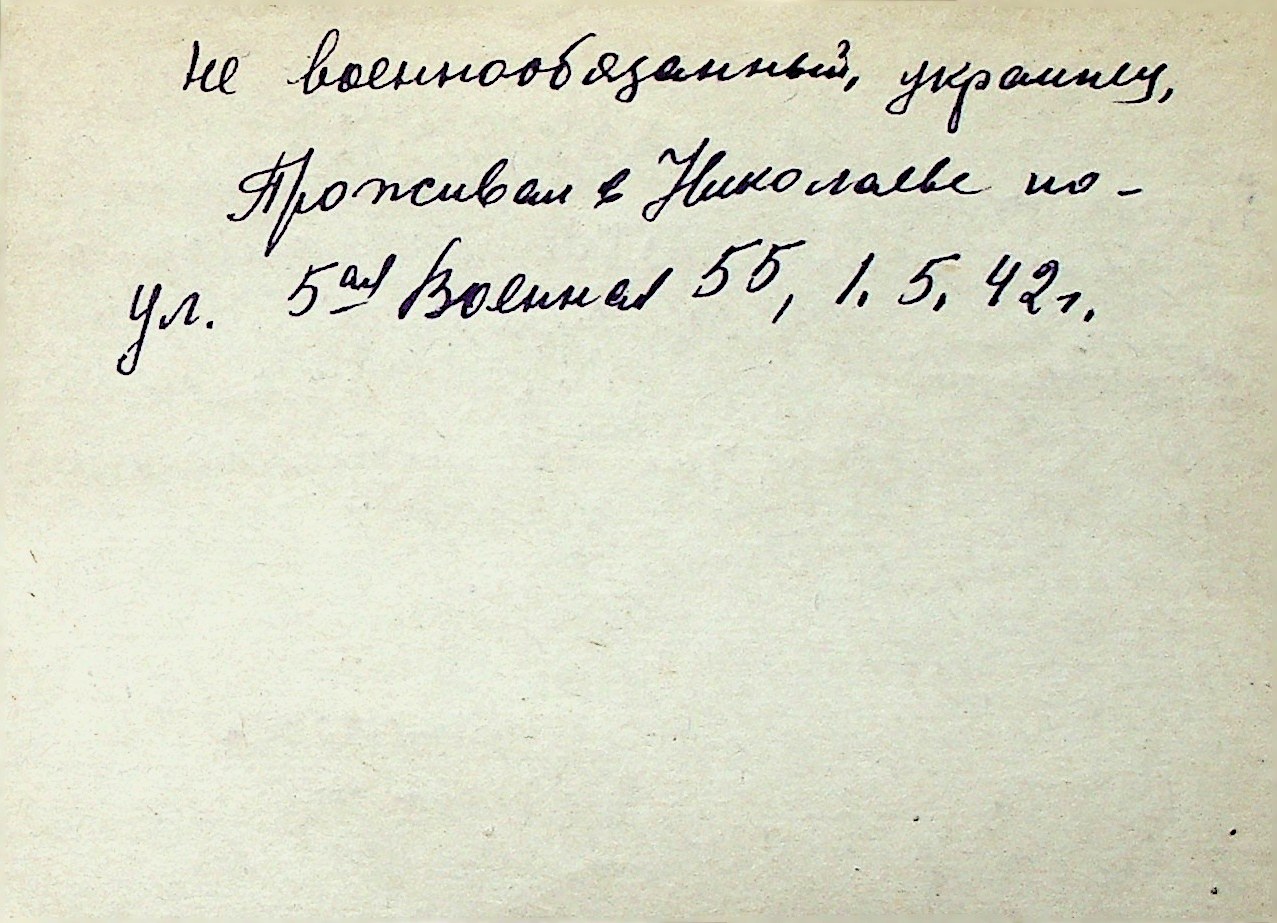 не военнообязанный, украинец,
Проживал в Николаеве по-
ул. 5ая Военная 55, 1.5.42г.